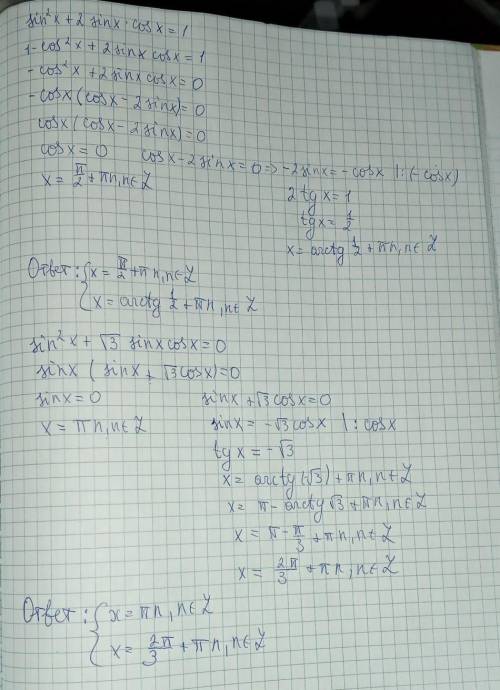 sin²x + 2 sinx · cosx = 1
1 - cos²x + 2 sinx cosx = 1
- cos²x + 2 sinx cosx = 0
- cosx (cosx - 2 sinx) = 0
cosx (cosx - 2 sinx) = 0
cosx = 0 cosx - 2 sinx = 0 => -2 sinx = - cosx |: (- cosx)
x = π/2 + πn, n∈Z 2 tgx = 1
tgx = 1/2
x = arctg 1/2 + πn, n∈Z
Ответ: { x = π/2 + πn, n∈Z
x = arctg 1/2 + πn, n∈Z
sin²x + √3 sinx cosx = 0
sinx (sinx + √3 cosx) = 0
sinx = 0 sinx + √3 cosx = 0
x = πn, n∈Z sinx = -√3 cosx |: cosx
tgx = -√3
x = arctg(-√3) + πn, n∈Z
x = π - arctg√3 + πn, n∈Z
x = π - π/3 + πn, n∈Z
x = 2π/3 + πn, n∈Z
Ответ: { x = πn, n∈Z
x = 2π/3 + πn, n∈Z